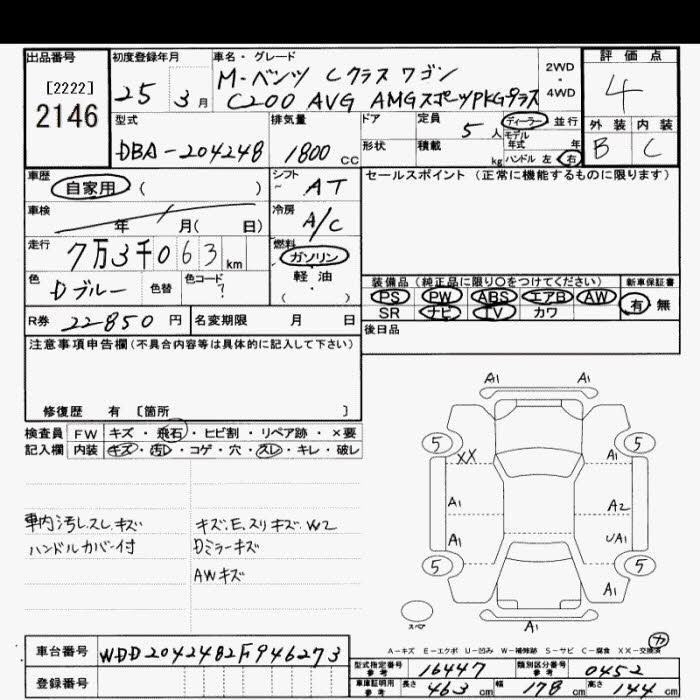 出品番号
[2222]
2146
初度登録年月
25年 3月
車名・グレード
M-ベンツ Cクラス ワゴン
C200 AVG AMGスポーツPKGプラス
2WD
・
4WD
評価点
4
外装 内装
B C
型式
DBA-204248
排気量
1800 cc
ドア
形状
定員 5人
積載 kg
ディーラー 並行
モデル年式 年
ハンドル 左 右
車歴
自家用 ( )
シフト
~ AT
セールスポイント (正常に機能するものに限ります)
車検
年 月( 日)
冷房
A/C
走行
7万3千063 km
燃料
ガソリン
軽・油
( ・ )
色
Dブルー
色替
色コード
?
装備品 (純正品に限り○をつけてください)
PS PW ABS エアB AW
SR ナビ TV カワ
新車保証書
有 無
R券 22-850 円
名変期限 月 日
後日品
注意事項申告欄(不具合内容等は具体的に記入して下さい)
修復歴 有 [箇所 ]
検査員
記入欄
FW キズ・飛石・ヒビ割・リペア跡・×要
内装 キズ・汚レ・コゲ・穴・スレ・キレ・破レ
車内汚レスレキズ
ハンドルカバー付
キズ.E.スリキズ.W2
Dミラーキズ
AWキズ
A1 A1
5 5
XX A1
A1 A2
A1 UA1
5 5
A1
A1
スペア
カ
A-キズ E-エクボ U-凹み W-補修跡 S-サビ C-腐食 XX-交換済
車台番号 WDD2042482F946273
登録番号
型式指定番号
参考 16447
類別区分番号
参考 0452
車庫証明用
参考
長さ 463 cm 幅 178 cm 高さ 144 cm